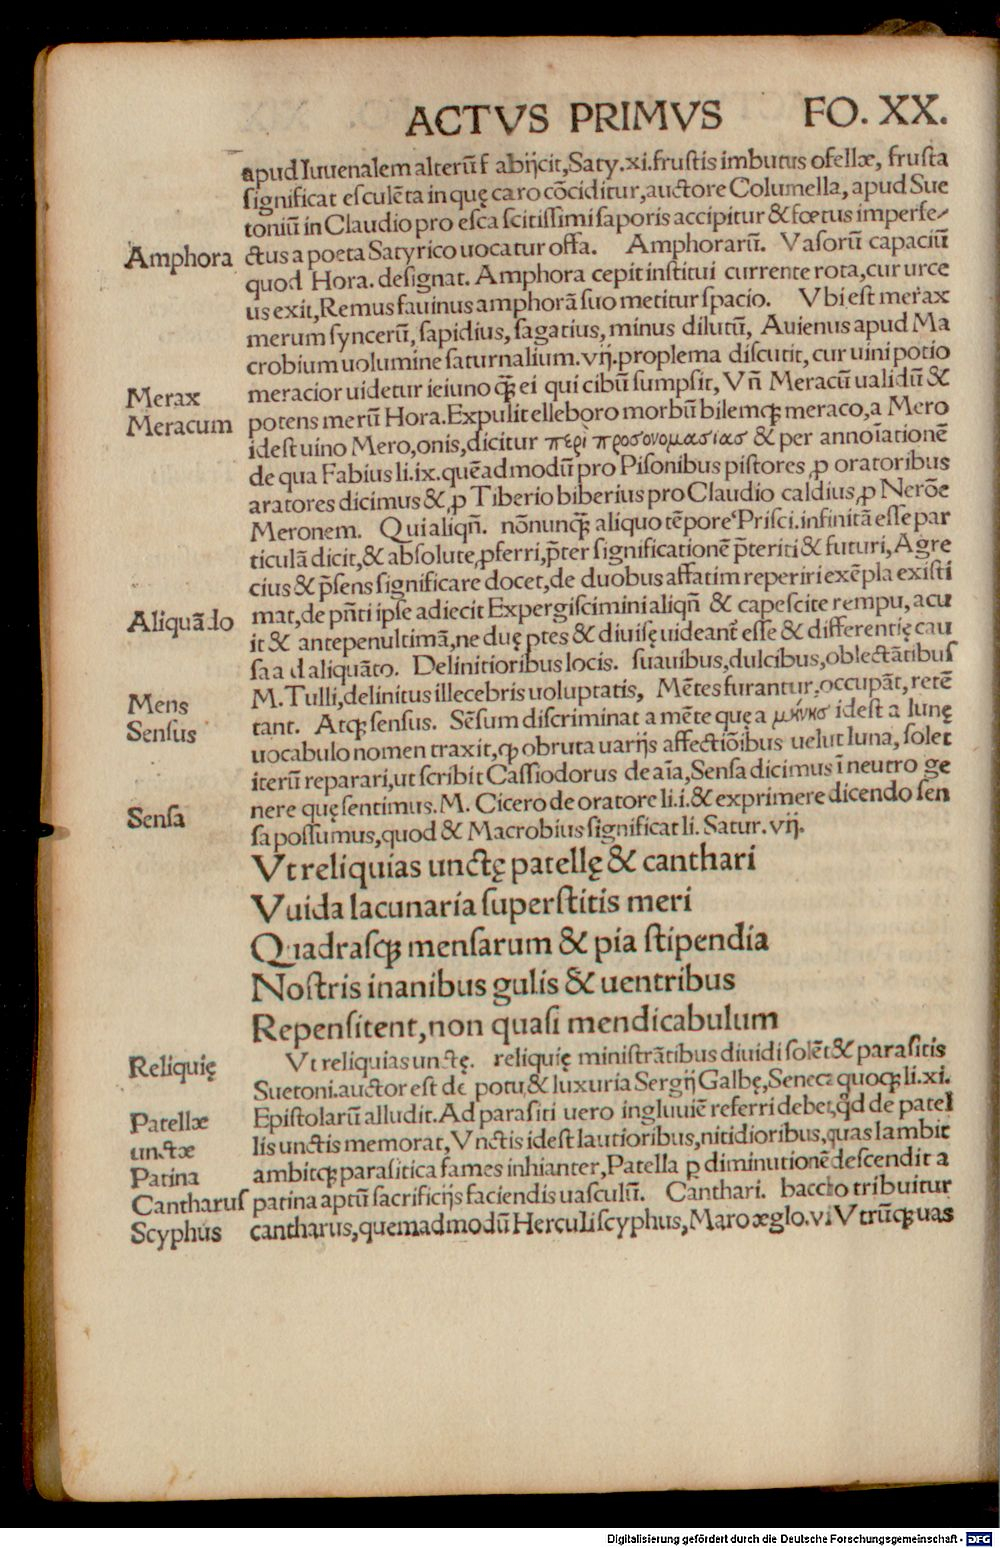 ACTVS PRIMVS FO. XX.
apud Iuuenalem alterũ f abijcit, Saty. xi. frustis imbutus ofellæ, frusta
significat esculẽta in quę caro cõciditur, auctore Columella, apud Sue
toniũ in Claudio pro esca scitissimi saporis accipitur & fœtus imperfe-
Amphora ctus a poeta Satyrico uocatur offa. Amphorarũ. Vasorũ capaciũ
quod Hora. designat. Amphora cepit institui currente rota, cur urce
us exit, Remus fauinus amphorã suo metitur spacio. Vbi est merax
merum syncerũ, sapidius, sagatius, minus dilutũ, Auienus apud Ma
crobium uolumine saturnalium. vij. proplema discutit, cur uini potio
Merax meracior uidetur ieiuno q̃ꝫ ei qui cibũ sumpsit, Vñ Meracũ ualidũ &
Meracum potens merũ Hora. Expulit elleboro morbũ bilemqꝫ meraco, a Mero
idest uino Mero, onis, dicitur περὶ προσονομασίασ & per annoĩationẽ
de qua Fabius li. ix. quẽadmodũ pro Pisonibus pistores, ꝓ oratoribus
aratores dicimus &, ꝓ Tiberio biberius pro Claudio caldius, ꝓ Nerõe
Meronem. Qui aliqñ. nõnunq̃ꝫ aliquo tẽpore Prisci. infinitã esse par
ticulã dicit, & absolute, ꝓferri, p̃ter significationẽ p̃teriti & futuri, Agre
cius & p̃sens significare docet, de duobus affatim reperiri exẽpla existi
Aliquãdo mat, de pñti ipse adiecit Expergiscimini aliqñ & capescite rempu, acu
it & antepenultimã, ne duę ptes & diuisę uideant̃ esse & differentię cau
sa ad aliquãto. Delinitioribus locis. suauibus, dulcibus, oblectãtibus
Mens M. Tulli, delinitus illecebris uoluptatis, Mẽtes furantur, occupãt, retẽ
Sensus tant. Atqꝫ sensus. Sẽsum discriminat a mẽte quę a μήνησ idest a lunę
uocabulo nomen traxit, ꝙ obruta uarijs affectiõibus uelut luna, solet
iterũ reparari, ut scribit Cassiodorus de aĩa, Sensa dicimus ĩ neutro ge
Sensa nere quę sentimus. M. Cicero de oratore li. i. & exprimere dicendo sen
sa possumus, quod & Macrobius significat li. Satur. vij.
Vt reliquias unctę patellę & canthari
Vuida lacunaria superstitis meri
Quadrasqꝫ mensarum & pia stipendia
Nostris inanibus gulis & uentribus
Repensitent, non quasi mendicabulum
Reliquię Vt reliquias unctę. reliquię ministrãtibus diuidi solẽt & parasitis
Suetoni. auctor est de potu & luxuria Sergij Galbę, Seneca quoqꝫ li. xi.
Patellæ Epistolarũ alludit. Ad parasiti uero ingluuiẽ referri debet, qd̃ de patel
unctæ lis unctis memorat, Vnctis idest lautioribus, nitidioribus, quas lambit
Patina ambitqꝫ parasitica fames inhianter, Patella ꝑ diminutionẽ descendit a
Cantharus patina aptũ sacrificijs faciendis uasculũ. Canthari. baccho tribuitur
Scyphus cantharus, quemadmodũ Herculi scyphus, Maro æglo. vi Vtrũqꝫ uas
Digitalisierung gefördert durch die Deutsche Forschungsgemeinschaft - DFG